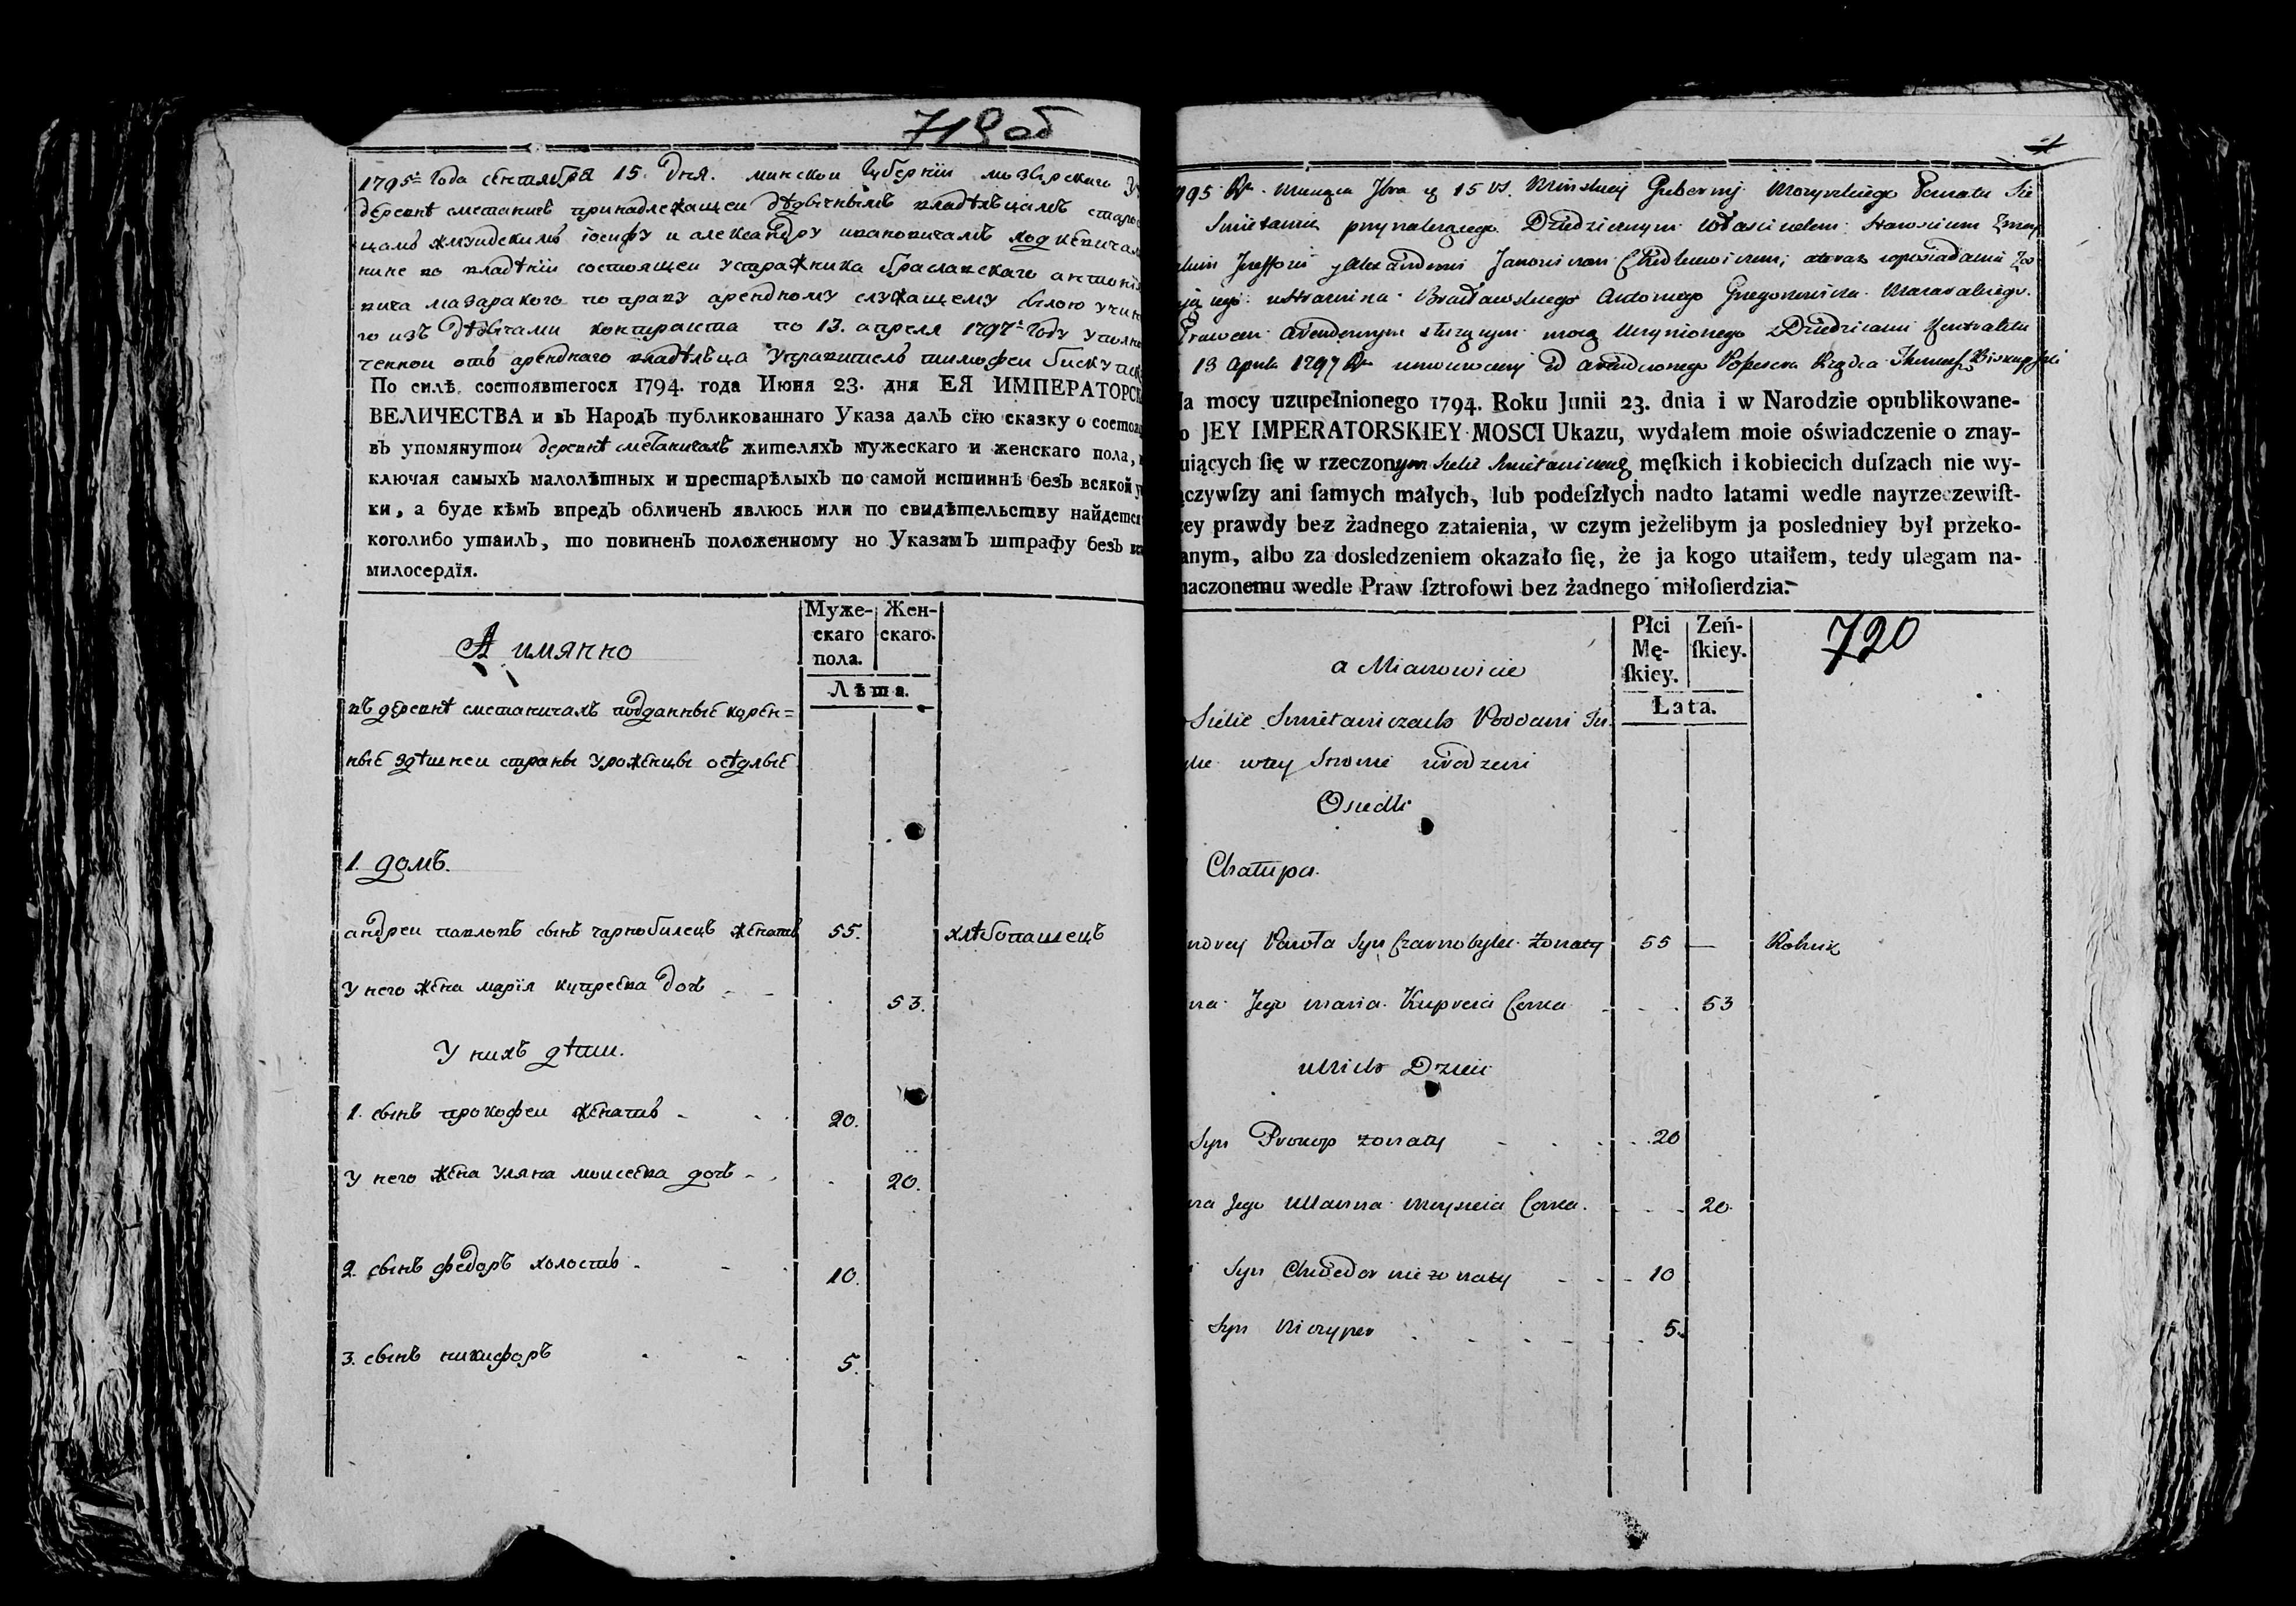 719 об
1795 года сентября 15 дня. минской губернїи мозырскаго
деревнѣ сметаничъ принадлежащей дѣдичнымъ владѣльцамъ
цамъ жмуидскимъ іосифу и александру ивановичамъ ходкевичам
нине во владѣнїи состоящеи у стражника браславскаго антонї
вича мазаракого по праву арендному служащему силою учин
го изъ дѣдичами контракта по 13. апреля 1797 году уполно
ченнои отъ арендного владѣльца управитель тимофеи бискупск
По силѣ состоявшегося 1794. года Июня 23. дня ЕЯ ИМПЕРАТОРСК
ВЕЛИЧЕСТВА и въ Народъ публикованнаго Указа далъ сїю сказку о состоя
въ упомянутои деревнѣ сметаничахъ жителяхъ мужескаго и женскаго пола,
ключая самыхъ малолѣтныхъ и престарѣлыхъ по самой истиннѣ безъ всякой у
ки, а буде кѣмъ впредъ обличенъ явлюсь или по свидѣтельству найдется
коголибо утаилъ, то повиненъ положенному по Указамъ штрафу безъ вс
милосердїя.
А имянно
Муже-
скаго
пола.
Жен-
скаго.
Лѣта.
въ деревнѣ сметаничахъ подданные корен=
ные здѣшнеи страны уроженцы осѣдлые
1. домъ.
андреи павловъ сынъ чарнобилецъ женатъ 55. хлѣбопашецъ
у него жена марїя купреева дочь 53.
У нихъ дѣти.
1. сынъ прокофеи женатъ 20.
у него жена уляна моисеева дочь 20.
2. сынъ федоръ холостъ 10.
3. сынъ никифоръ 5.
795 15 Vs. Minskiey Gubernij Mozyrskiego Powiatu Sie
Smietanicz przynalezącego Dziedzicznym Włascicielom Starościcom
Jozeffowi y Alexandrowi Janowiczom Chodkiewiczom;
Strażnika Bracławskiego Antoniego Gregorowicza Mazarakiego.
Prawem Arendownym służącym mocą Uczynionego z Dziedzicami Kontraktu
13 Aprila 1797 od Arendownego Possesora Rządca Biskupski
Na mocy uzupełnionego 1794. Roku Junii 23. dnia i w Narodzie opublikowane-
o JEY IMPERATORSKIEY MOSCI Ukazu, wydałem moie oświadczenie o znay-
uiących ſię w rzeczonym Siele Smietaniczach męſkich i kobiecich duſzach nie wy-
ączywſzy ani ſamych małych, lub podeſzłych nadto latami wedle nayrzeczewiſt-
zey prawdy bez żadnego zataienia, w czym jeżelibym ja posledniey był przeko-
anym, albo za dosledzeniem okazało ſię, że ja kogo utaiłem, tedy ulegam na-
naczonemu wedle Praw ſztrofowi bez żadnego miłoſierdzia.
a Mianowicie
Płci
Mę-
ſkiey.
Zeń-
ſkiey.
Łata.
720
Siele Smietaniczach Poddani
wtey Stronie urodzeni
Osiedli
Chałupa.
ndrey Pawła Syn Czarnobylec Zonaty 55 — Rolnik
na Jego Maria Kupreia Corka 53
u Nich Dzieci
Syn Prokop zonaty 20
na Jego Ullanna Moysieia Corka. 20
Syn Chwedor niezonaty 10
Syn Niczypor 5.